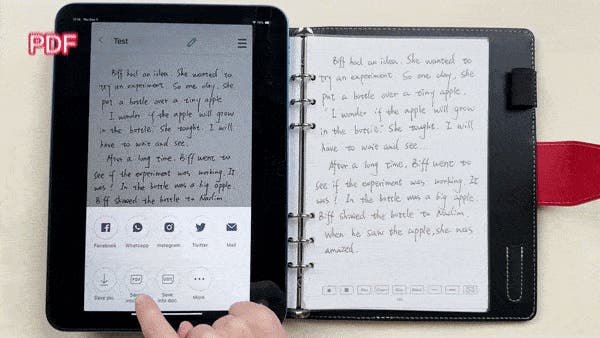 PDF
Test
Biff had an idea. She wanted to
try an experiment. So one day, she
put a bottle over a tiny apple.
"I wonder if the apple will grow
in the bottle". She tought. I will
have to wait and see.
After a long time, Biff went to
see if the experiment was working. It
was! In the bottle was a big apple.
Biff showed the bottle to Nadim.
Facebook
WhatsApp
Instagram
Twitter
Mail
Save pic.
Save
Save
into doc
More
Biff had an idea. She wanted to
try an experiment. So one day, she
put a bottle over a tiny apple.
"I wonder if the apple will grow
in the bottle". She tought. I will
have to wait and see...
After a long time, Biff went to
see if the experiment was working. It
was! In the bottle was a big apple.
Biff showed the bottle to Nadim.
When he saw the apple, she was
amazed.